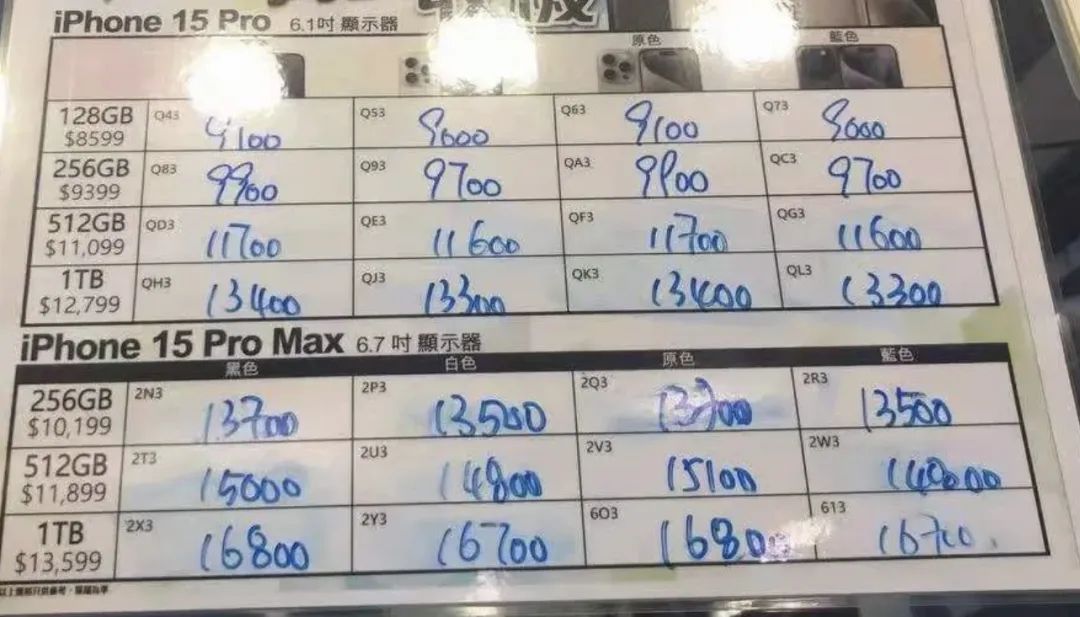 iPhone 15 Pro 6.1吋 顯示器
原色 藍色
128GB Q43 9100 Q53 9000 Q63 9100 Q73 9000
$8599
256GB Q83 9900 Q93 9700 QA3 9900 QC3 9700
$9399
512GB QD3 11700 QE3 11600 QF3 11700 QG3 11600
$11,099
1TB QH3 13400 QJ3 13300 QK3 13400 QL3 13300
$12,799
iPhone 15 Pro Max 6.7吋 顯示器
黑色 白色 原色 藍色
256GB 2N3 13700 2P3 13500 2Q3 13700 2R3 13500
$10,199
512GB 2T3 15000 2U3 14800 2V3 15100 2W3
$11,899
1TB 2X3 16800 2Y3 16700 6O3 16800 613 16700
$13,599